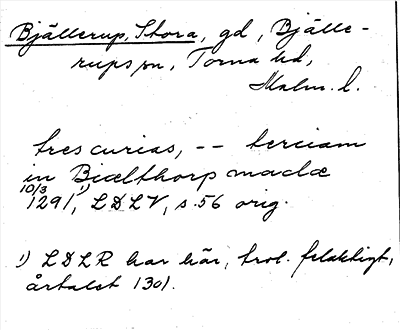 Bjällerup, Stora, gd, Bjälle-
rups sn, Torna hd,
Malm. l.
tres curias, -- terciam
in Biælthorp madæ
10/3 1)
1291, LDLV, s. 56 orig.
1) LDLR har här, trol. felaktigt,
årtalet 1301.